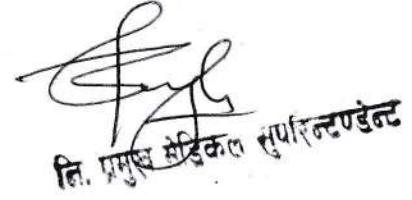 नि. प्रमुख मेडिकल सुपरिन्टेण्डेन्ट